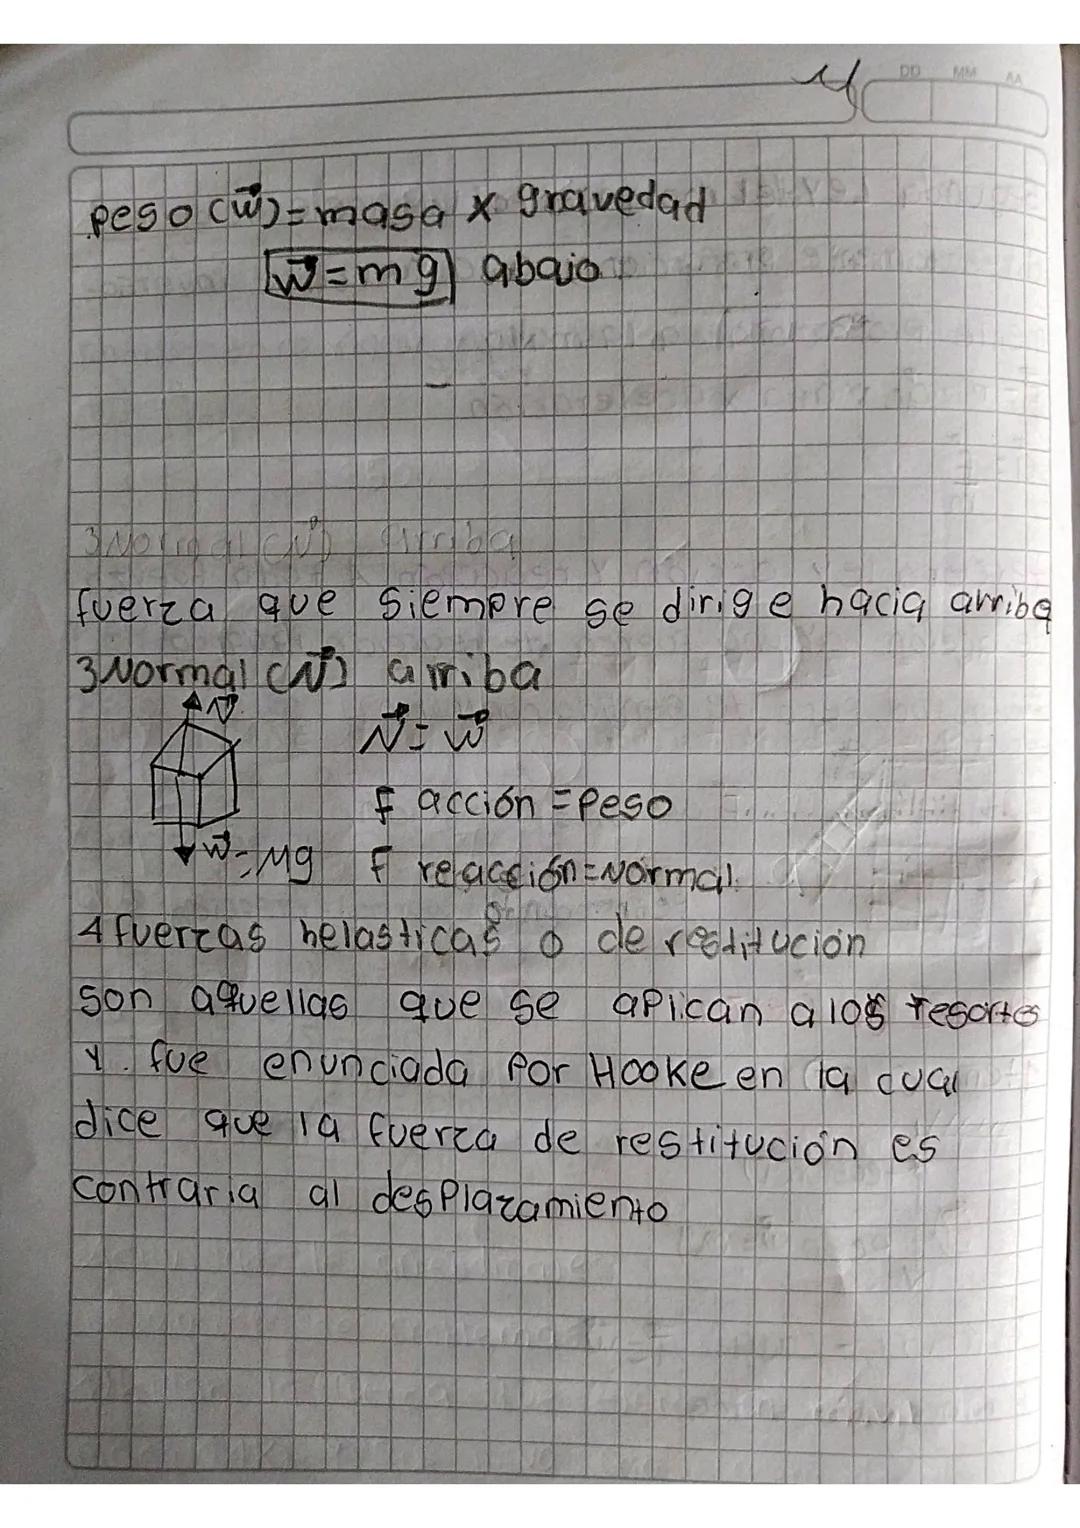 DD MM AA
peso (w⃗) = masa x gravedad
w⃗ = mg abajo
3 Normal (N⃗) arriba
fuerza que siempre se dirige hacia arriba
3 Normal (N⃗) arriba
N⃗
N⃗ = w⃗
F acción = Peso
w⃗ = Mg F reacción = Normal.
4 fuerzas helasticas o de restitución
son aquellas que se aplican a los resortes
y. fue enunciada por Hooke en la cual
dice que la fuerza de restitución es
contraria al desplazamiento